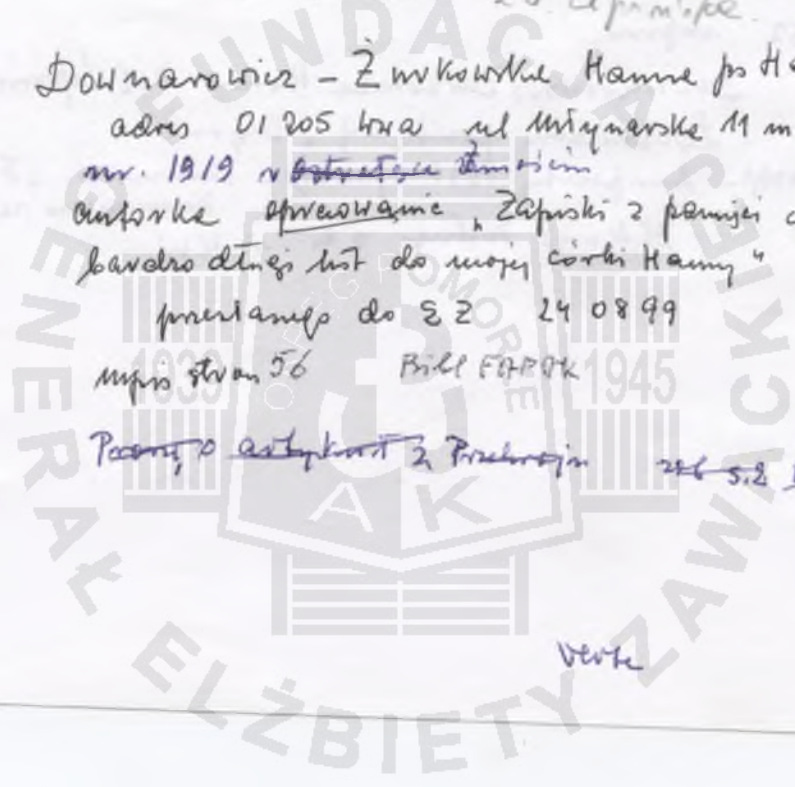 Downarowicz – Żurkowska Hanna ps Ha
adres 01 205 Wwa ul Młynarska 11 m
ur. 1919 w
autorka opracowanie „Zapiski z pamięci
bardzo długi list do mojej córki Hanny"
przesłanego do E Z 24 08 99
mps stron 56 Bibl FAPAK
artykuł z Przekroju
verte
FUNDACJA GENERAŁ ELŻBIETY ZAWACKIEJ
POMORZE
1939 1945
AK